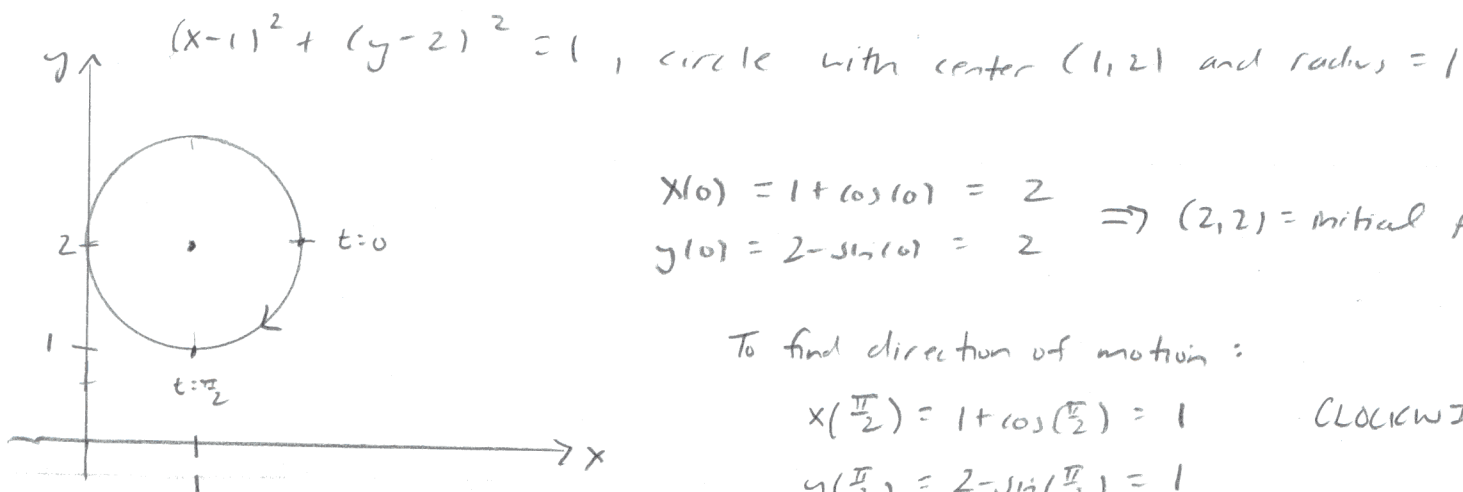 (x-1)² + (y-2)² = 1, circle with center (1,2) and radius = 1
y
x(0) = 1 + cos(0) = 2
y(0) = 2 - sin(0) = 2
⇒ (2,2) = initial
2
t=0
1
t=π/2
x
To find direction of motion:
x(π/2) = 1 + cos(π/2) = 1
CLOCKWI
y(π/2) = 2 - sin(π/2) = 1